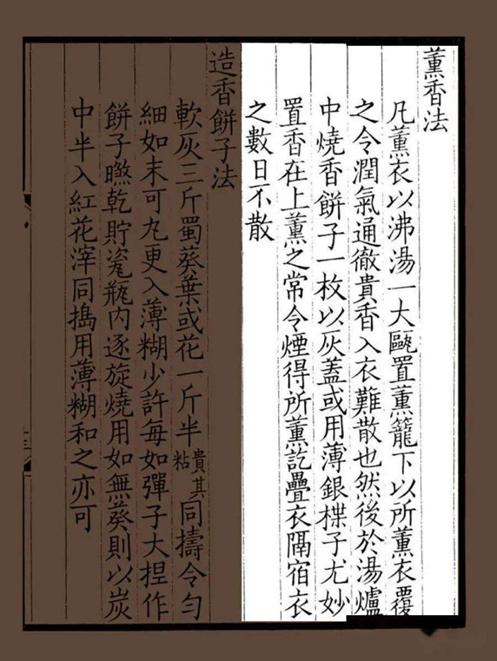 薰香法
凡薰衣以沸湯一大甌置薰籠下以所薰衣覆
之令潤氣通徹貴香入衣難散也然後於湯爐
中燒香餅子一枚以灰蓋或用薄銀楪子尤妙
置香在上薰之常令煙得所薰訖疊衣隔宿衣
之數日不散
造香餅子法
軟灰三斤蜀葵葉或花一斤半貴其粘同擣令勻
細如末可丸更入薄糊少許每如彈子大捏作
餅子曬乾貯瓷瓶內逐旋燒用如無葵則以炭
中半入紅花滓同搗用薄糊和之亦可